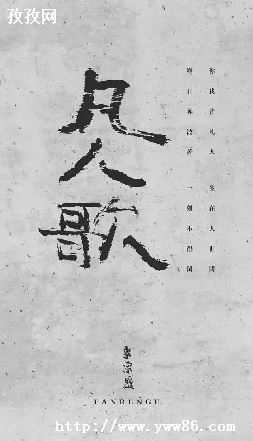 孜孜网
凡人歌
你我皆凡人 生在人世間
終日奔波苦 一刻不得閒
FANRENGE
http://www.yww86.com